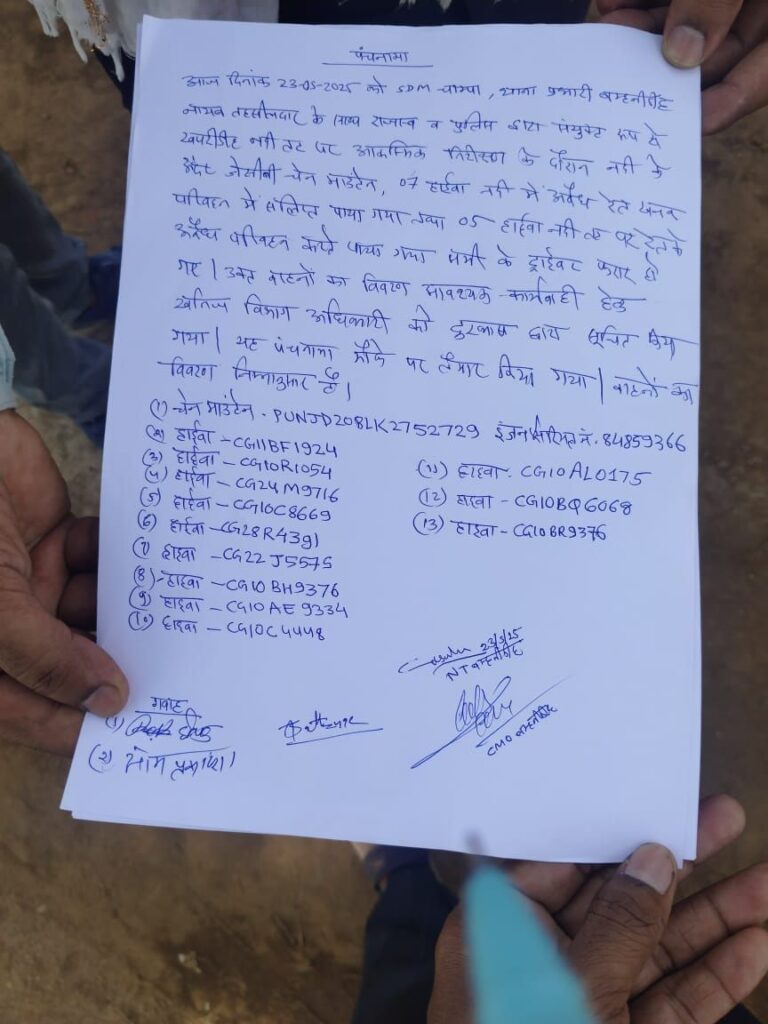 पंचनामा
आज दिनांक 23-05-2025 को SDM चाम्पा, थाना प्रभारी बम्हनीडीह
नायब तहसीलदार के साथ राजस्व व पुलिस द्वारा संयुक्त रूप से
खपरीडीह नदी तट पर आकस्मिक निरीक्षण के दौरान नदी के
अंदर जेसीबी चेन माउंटेन, 07 हाईवा नदी में अवैध रेत खनन
परिवहन में संलिप्त पाया गया तथा 05 हाईवा नदी तट पर रेत के
अवैध परिवहन करते पाया गया सभी के ड्राईवर फरार हो
गए। उक्त वाहनों का विवरण आवश्यक कार्यवाही हेतु
खनिज विभाग अधिकारी को दुरभाष द्वारा सूचित किया
गया। यह पंचनामा मौके पर तैयार किया गया। वाहनों का
विवरण निम्नानुसार है।
(1) चेन माउंटेन - PUNJD20BLK2752729 इंजन सिरियल नं. 84859366
(2) हाईवा - CG11BF1924
(3) हाईवा - CG10R1054
(4) हाईवा - CG24M9716
(5) हाईवा - CG10C8669
(6) हाईवा - CG28R4391
(7) हाइवा - CG22J5575
(8) - हाइवा - CG10BH9376
(9) हाइवा - CG10AE9334
(10) हाइवा - CG10C4448
(11) हाइवा - CG10AL0175
(12) हाइवा - CG10BQ6068
(13) हाइवा - CG10BR9376
23/5/25
NT बम्हनीडीह
CMO बम्हनीडीह
गवाह
(1)
(2) ओम प्रकाश।